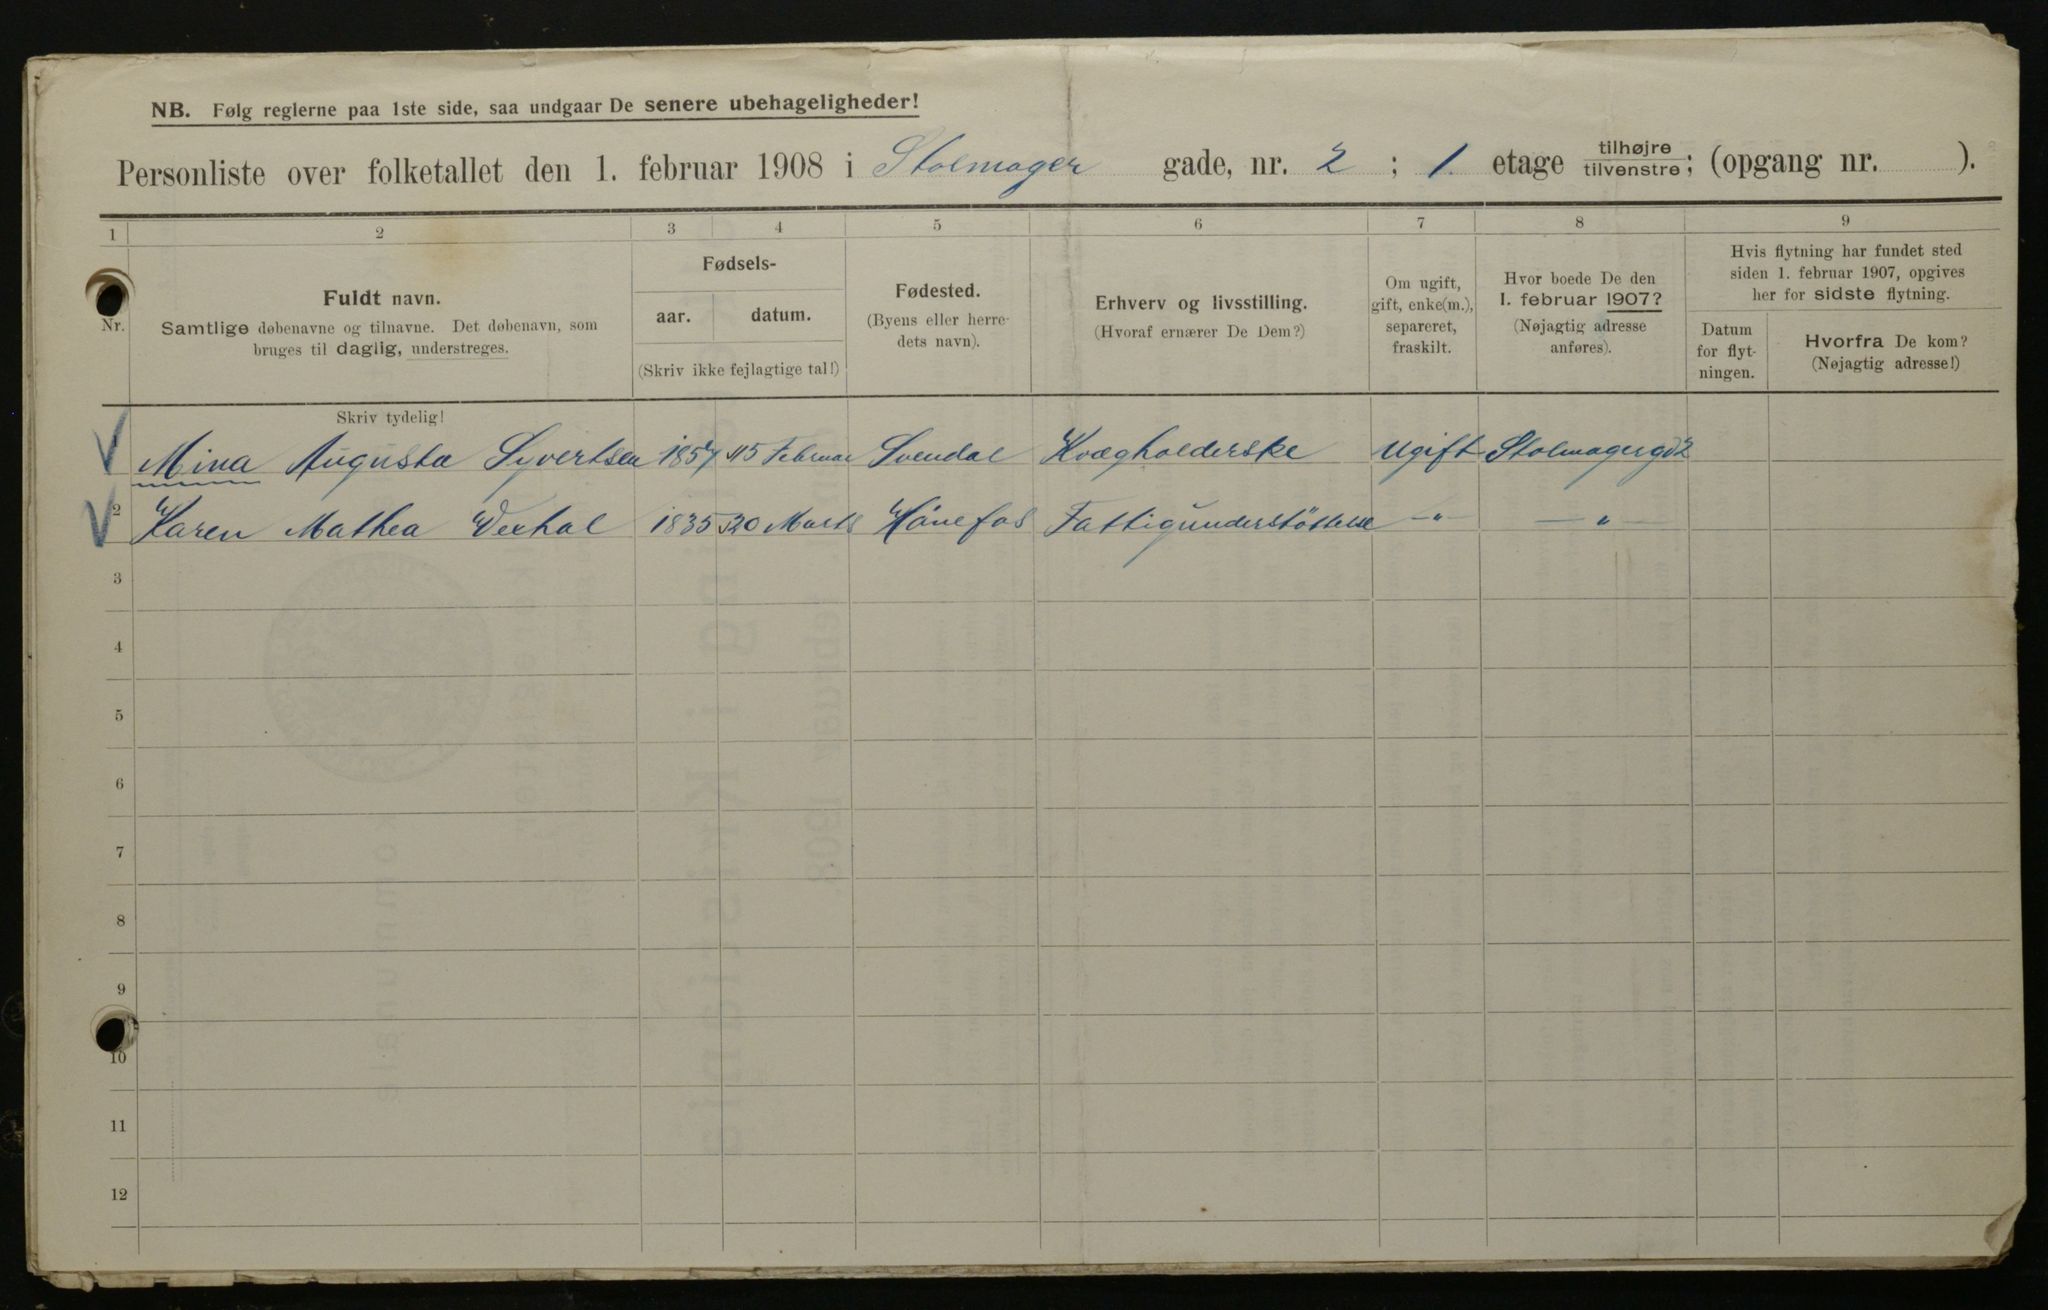 NB. Følg reglerne paa 1ste side, saa undgaar De senere ubehageligheder!
Personliste over folketallet den 1. februar 1908 i Stolmager gade, nr. 2 ; 1. etage tilhøjre/tilvenstre; (opgang nr. ).
1 2 3 4 5 6 7 8 9
Nr.
Fuldt navn.
Samtlige døbenavne og tilnavne. Det døbenavn, som
bruges til daglig, understreges.
Fødsels-
aar. datum.
(Skriv ikke fejlagtige tal!)
Fødested.
(Byens eller herre-
dets navn).
Erhverv og livsstilling.
(Hvoraf ernærer De Dem?)
Om ugift,
gift, enke(m.),
separeret,
fraskilt.
Hvor boede De den
1. februar 1907?
(Nøjagtig adresse
anføres).
Hvis flytning har fundet sted
siden 1. februar 1907, opgives
her for sidste flytning.
Datum
for flyt-
ningen.
Hvorfra De kom?
(Nøjagtig adresse!)
Skriv tydelig!
1 Mina Augusta Syvertsen 1857 15 Februar Svendal Kvægholderske Ugift Stolmagergd 2
2 Karen Mathea 1835 20 Marts Hönefos Fattigunderstöttelse -"- -"-
3
4
5
6
7
8
9
10
11
12